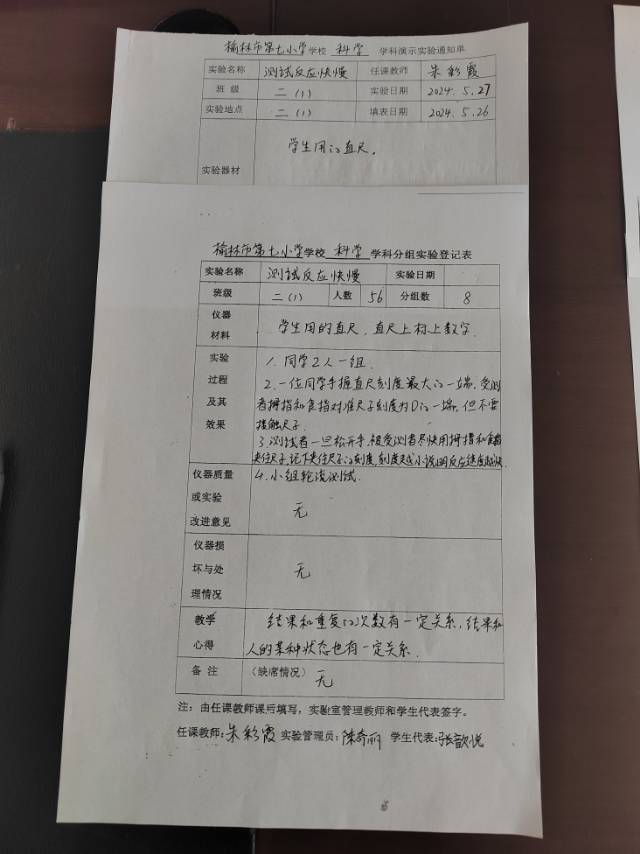 榆林市第七小学学校 科学 学科演示实验通知单
实验名称 测试反应快慢 任课教师 朱彩霞
班 级 二(1) 实验日期 2024.5.27
实验地点 二(1) 填表日期 2024.5.26
学生用的直尺.
实验器材
榆林市第七小学学校 科学 学科分组实验登记表
实验名称 测试反应快慢 实验日期
班级 二(1) 人数 56 分组数 8
仪器
材料
学生用的直尺.直尺上标上数字.
实验
过程
及其
效果
1.同学2人一组.
2.一位同学手握直尺刻度最大的一端,受测
者拇指和食指对准尺子刻度为0的一端,但不要
接触尺子.
3.测试者一旦松开手,被受测者尽快用拇指和食指
夹住尺子,记下夹住尺子的刻度,刻度越小说明反应速度越快.
4.小组轮流测试.
仪器质量
或实验
改进意见
无
仪器损
坏与处
理情况
无
教学
心得
结果和重复的次数有一定关系,结果和
人的某种状态也有一定关系.
备 注 (缺席情况) 无
注:由任课教师课后填写,实验室管理教师和学生代表签字。
任课教师:朱彩霞 实验管理员:陈奇丽 学生代表:张歆悦